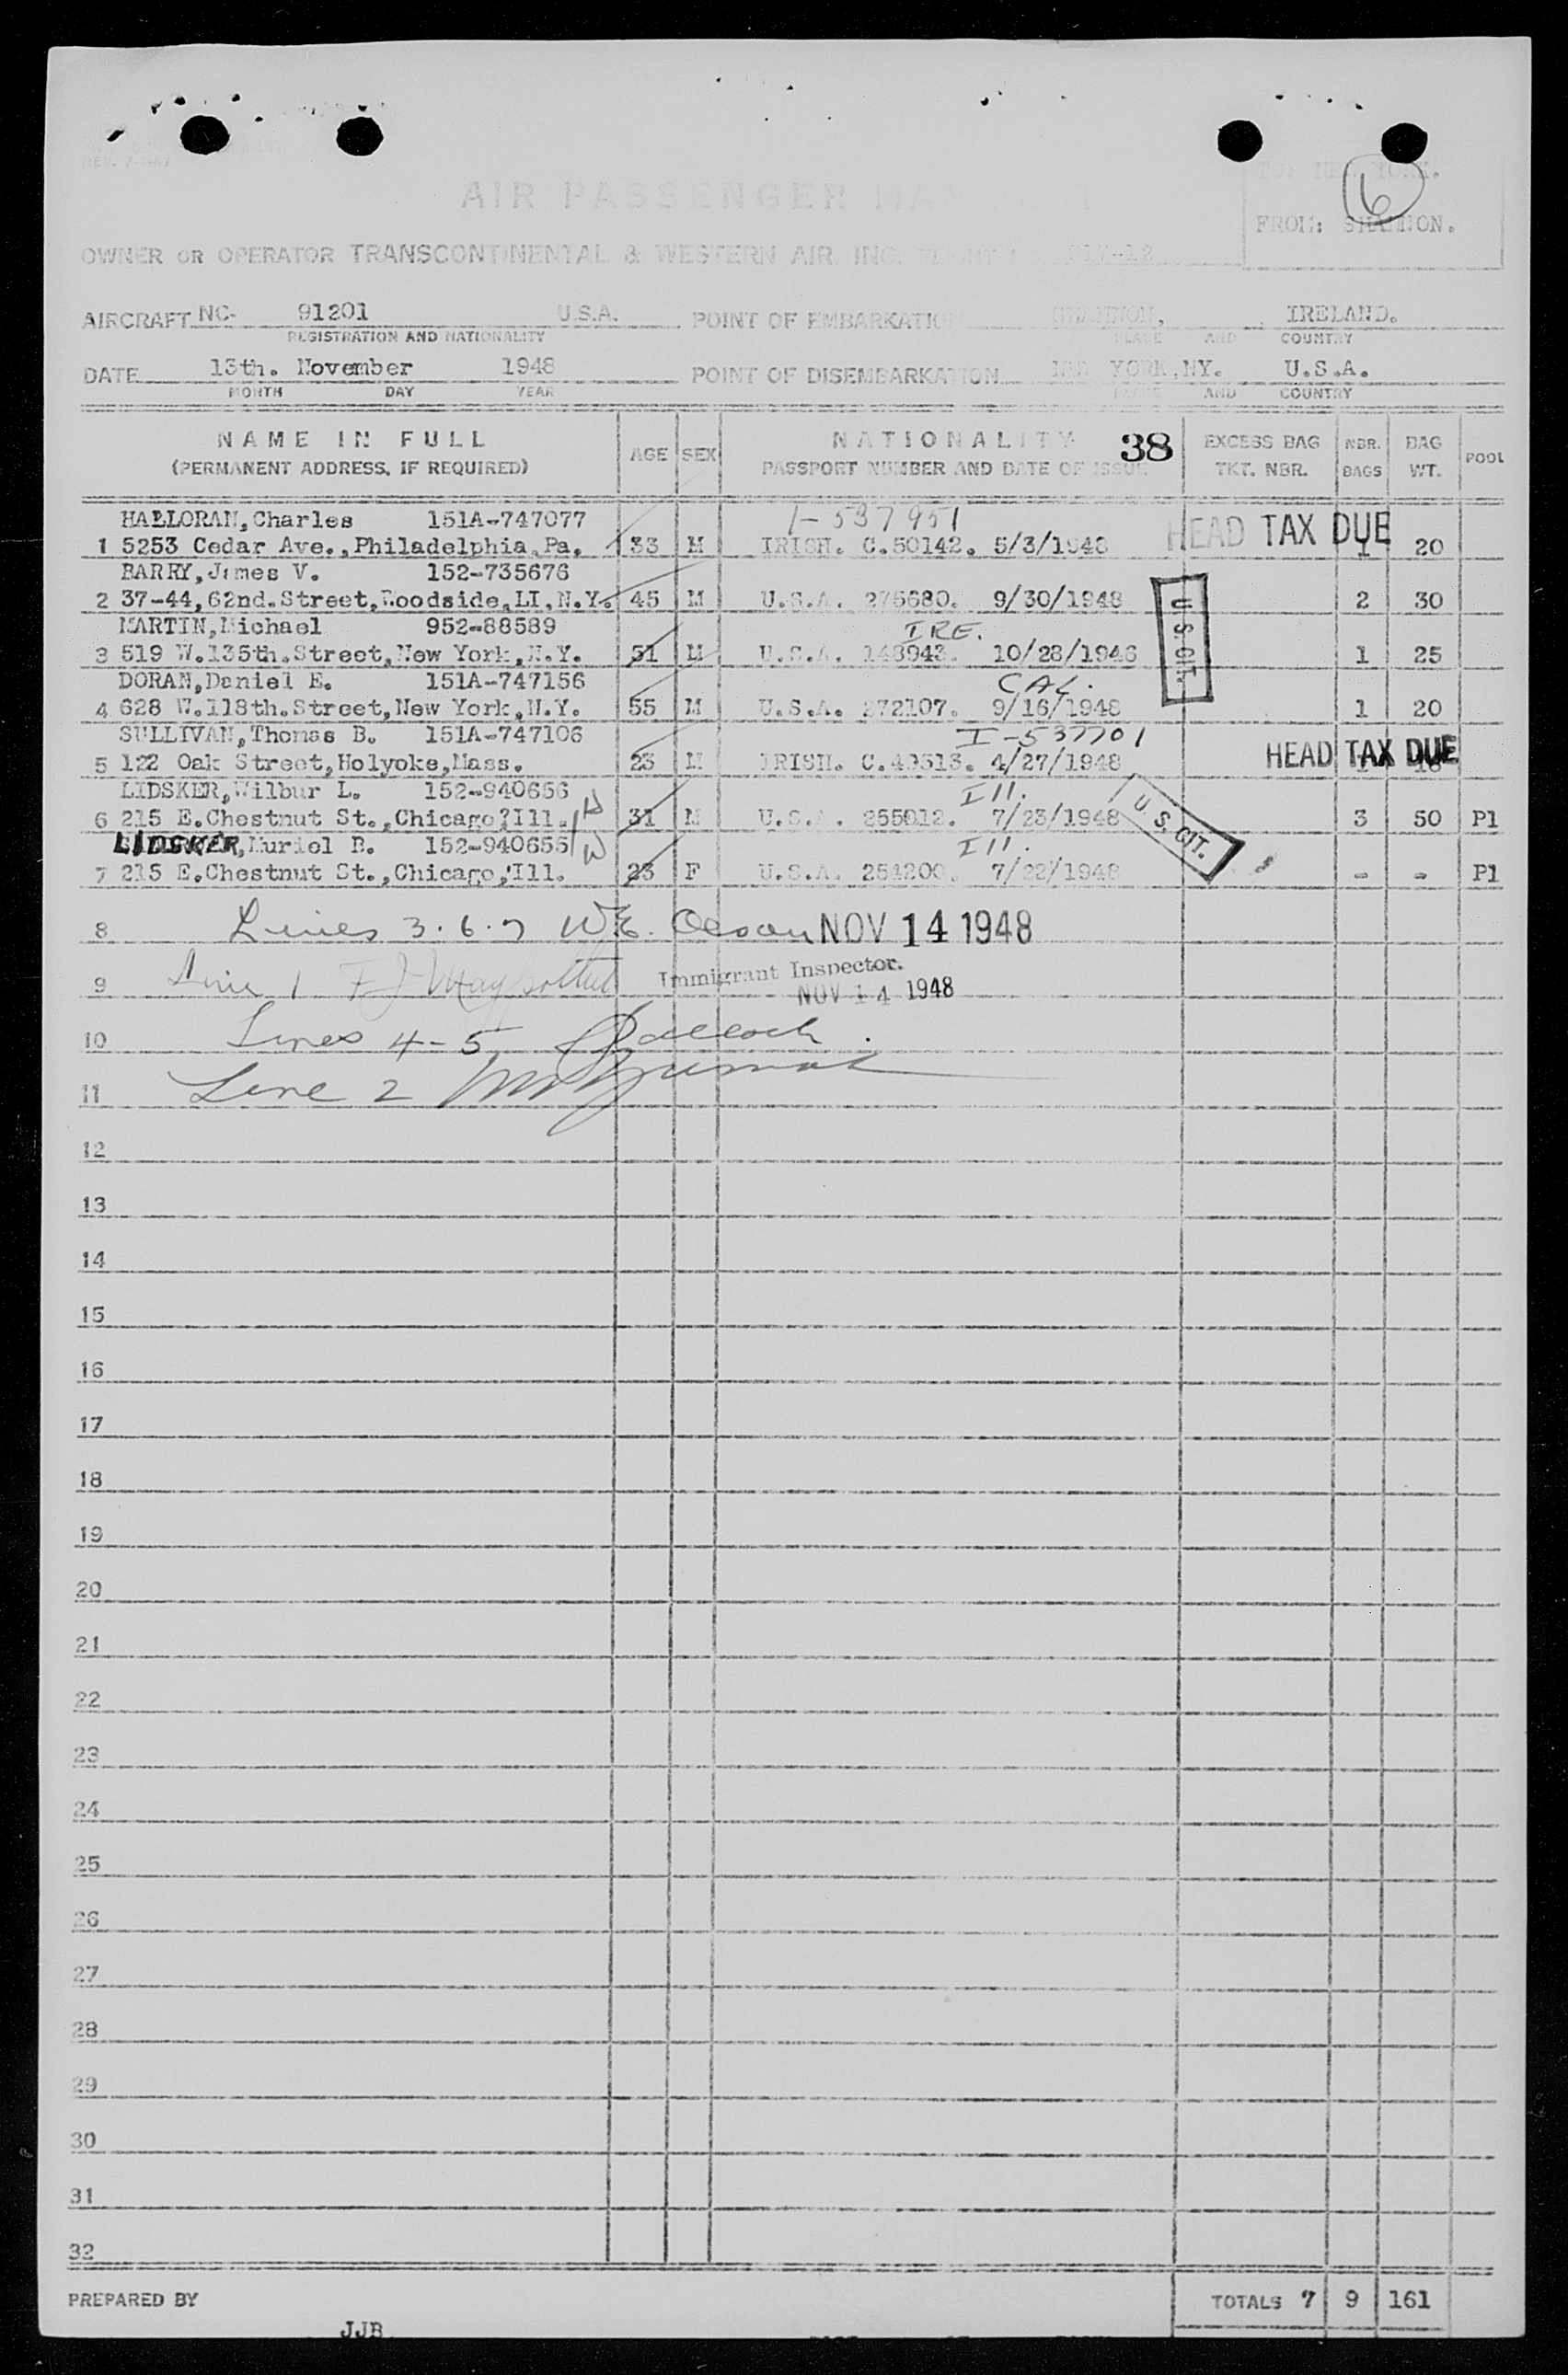 REV.
TO: NEW YORK.
6
AIR PASSENGER MA
FROM: SHANNON.
OWNER OR OPERATOR TRANSCONTINENTAL & WESTERN AIR, INC.
AIRCRAFT NC- 91201 U.S.A. POINT OF EMBARKATION SHANNON, IRELAND.
REGISTRATION AND NATIONALITY PLACE AND COUNTRY
DATE 13th. November 1948 POINT OF DISEMBARKATION NEW YORK,NY. U.S.A.
MONTH DAY YEAR PLACE AND COUNTRY
NAME IN FULL AGE SEX NATIONALITY 38 EXCESS BAG NBR. BAG POOL
(PERMANENT ADDRESS, IF REQUIRED) PASSPORT NUMBER AND DATE OF ISSUE TKT. NBR. BAGS WT.
HALLORAN,Charles 151A-747077 1-537951 HEAD TAX DUE
1 5253 Cedar Ave.,Philadelphia,Pa. 33 M IRISH. C.50142. 5/3/1948 1 20
BARRY,James V. 152-735676
2 37-44,62nd.Street,Woodside,LI,N.Y. 45 M U.S.A. 275680. 9/30/1948 U.S. CIT. 2 30
MARTIN,Michael 952-88589 IRE.
3 519 W.135th.Street,New York,N.Y. 51 M U.S.A. 148943. 10/28/1946 1 25
DORAN,Daniel E. 151A-747156 CAL.
4 628 W.118th.Street,New York,N.Y. 55 M U.S.A. 272107. 9/16/1948 1 20
SULLIVAN,Thomas B. 151A-747106 I-537701 HEAD TAX DUE
5 122 Oak Street,Holyoke,Mass. 23 M IRISH. C.49313. 4/27/1948 1 16
LIDSKER,Wilbur L. 152-940656 Ill.
6 215 E.Chestnut St.,Chicago?Ill. 31 M U.S.A. 255012. 7/23/1948 U.S. CIT. 3 50 Pl
LIDSKER,Muriel B. 152-940655 W Ill.
7 215 E.Chestnut St.,Chicago,Ill. 23 F U.S.A. 254200. 7/22/1948 - - Pl
8 Lines 3.6.7 W.E. Olson NOV 14 1948
9 Line 1 Immigrant Inspector.
NOV 14 1948
10 Lines 4-5
11 Line 2
12
13
14
15
16
17
18
19
20
21
22
23
24
25
26
27
28
29
30
31
32
PREPARED BY TOTALS 7 9 161
JJB